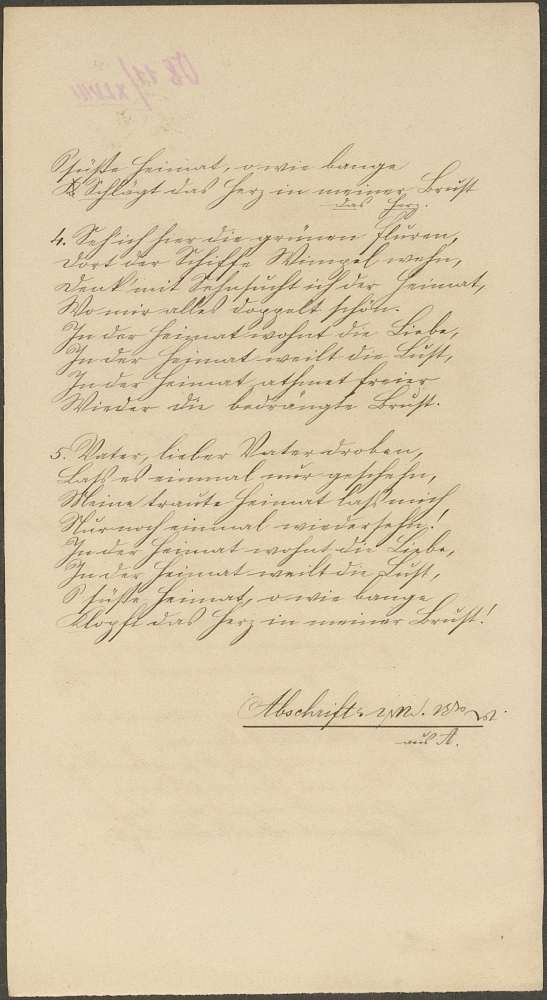 O süße Heimat, o wie bange
Schlägt das Herz in meiner Brust
das Herz.
4. Seh' ich hier die grünen Fluren,
Dort der Schiffe Wimpel wehn,
Denk' mit Sehnsucht ich der Heimat,
Wo mir alles doppelt schön.
In der Heimat wohnt die Liebe,
In der Heimat weilt die Lust,
In der Heimat athmet freier
Wieder die bedrängte Brust.
5. Vater, lieber Vater droben,
Lass es einmal nur geschehn,
Meine traute Heimat lass mich
Nur noch einmal wiedersehn!
In der Heimat wohnt die Liebe,
In der Heimat weilt die Lust,
O süße Heimat, o wie bange
Klopft das Herz in meiner Brust!
Abschrift
aus A.